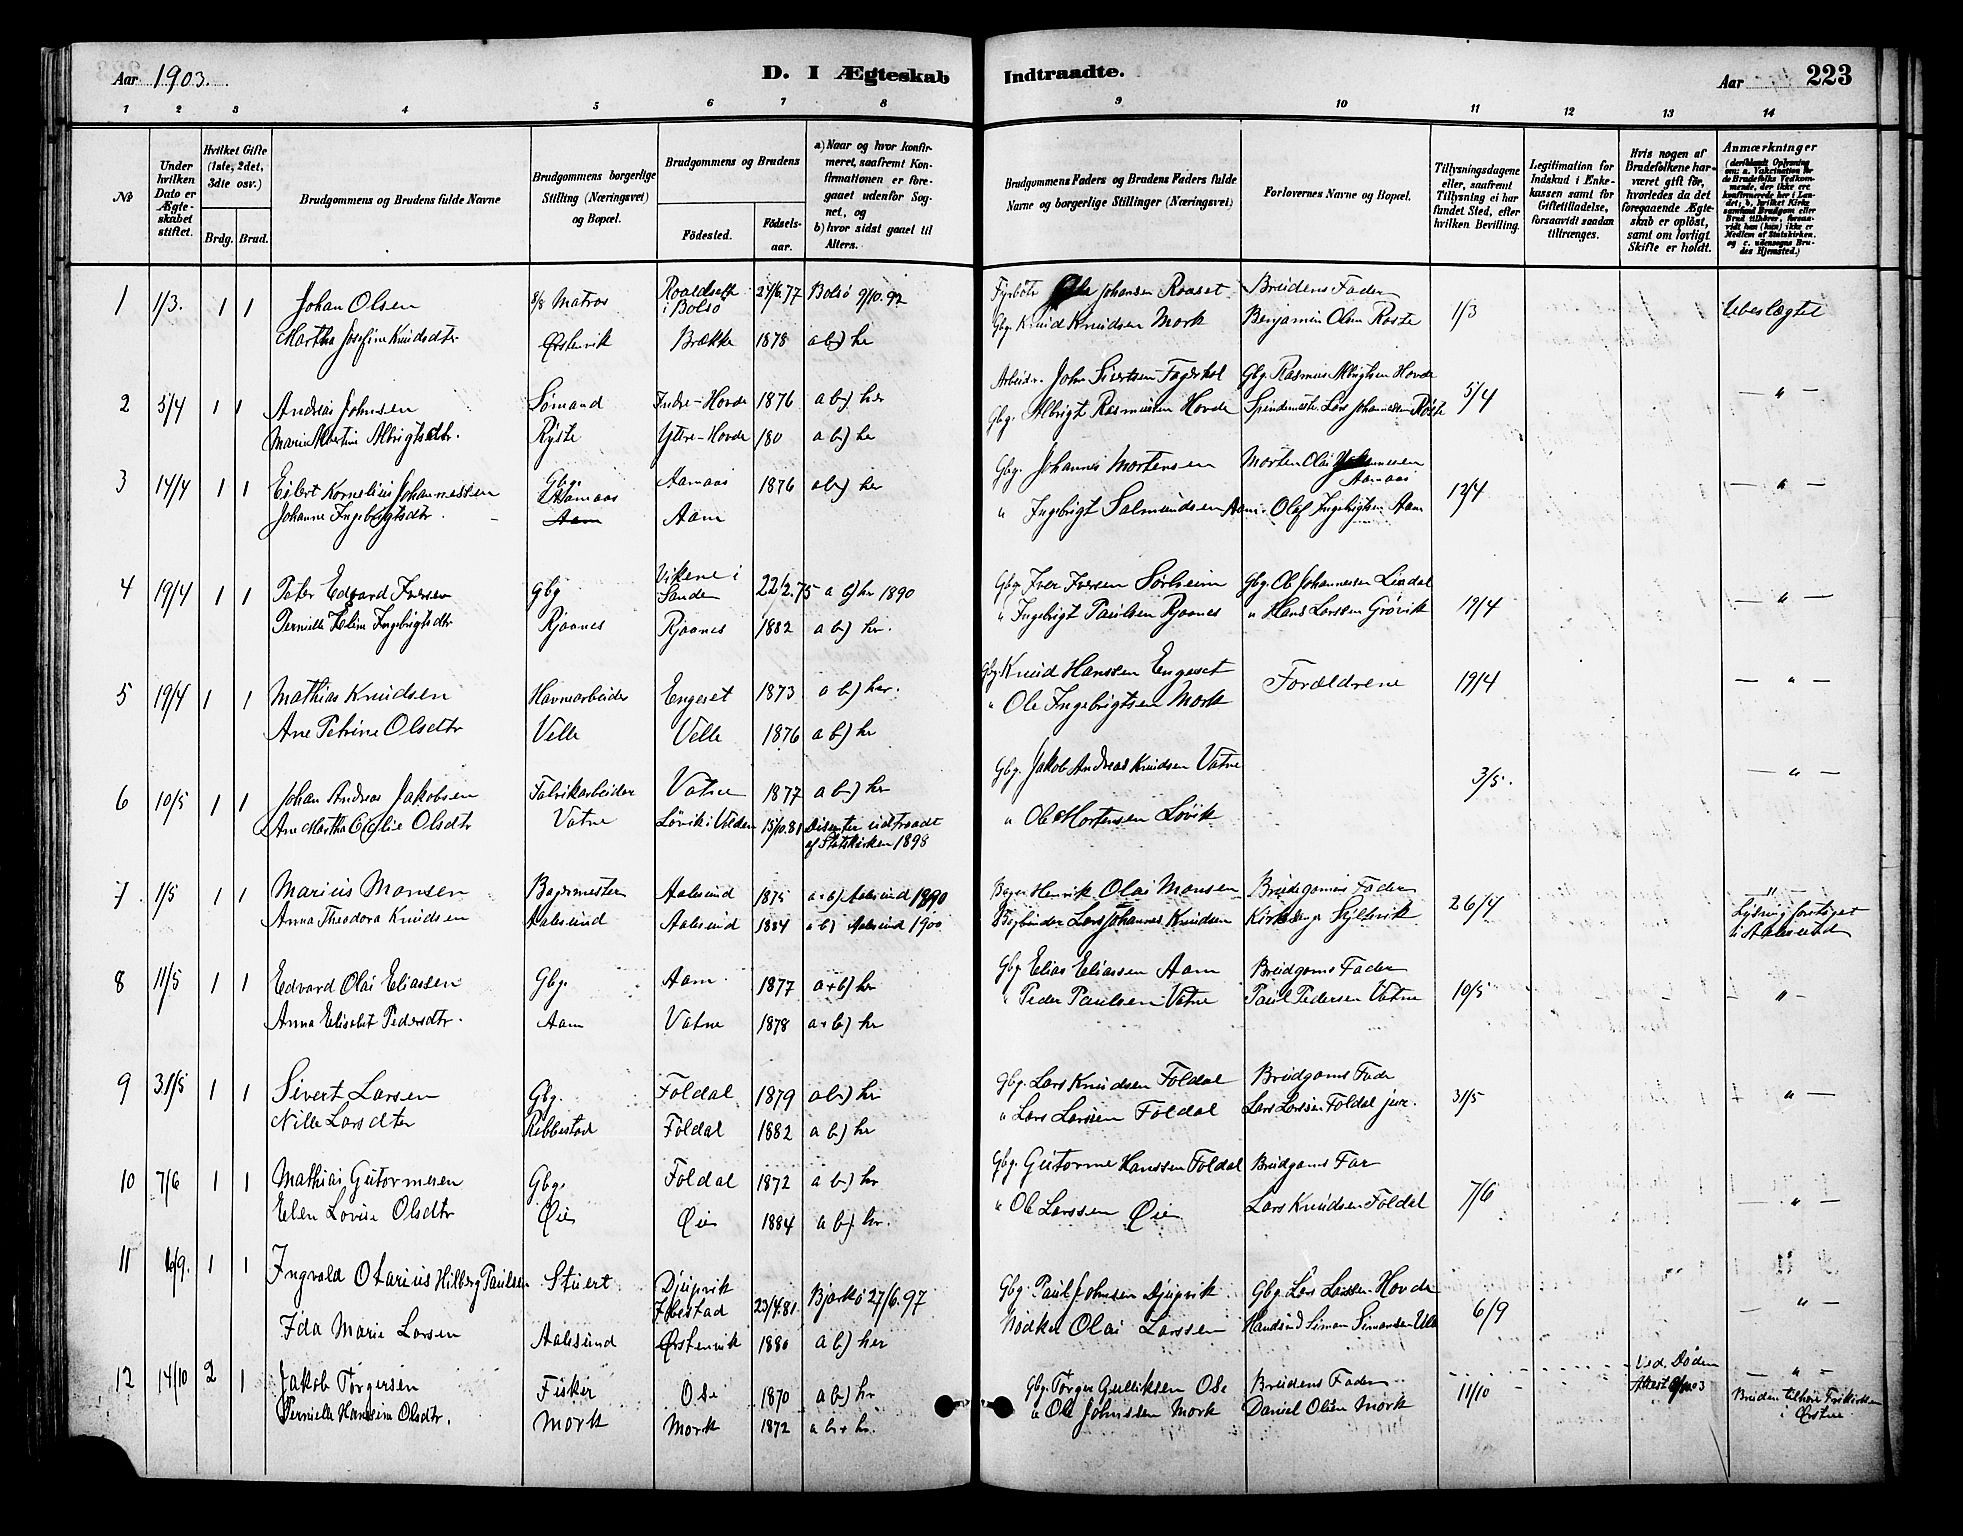 Aar 1903.
D. I Ægteskab
Indtraadte.
Aar
223
1 2 3 4 5 6 7 8 9 10 11 12 13 14
№
Under hvilken Dato er Ægteskabet stiftet.
Hvilket Gifte (1ste, 2det, 3die osv.)
Brdg. Brud.
Brudgommens og Brudens fulde Navne
Brudgommens borgerlige Stilling (Næringsvei) og Bopæl.
Brudgommens og Brudens
Fødested.
Fødselsaar.
a) Naar og hvor konfirmeret, saafremt Konfirmationen er foregaaet udenfor Sognet, og
b) hvor sidst gaaet til Alters.
Brudgommens Faders og Brudens Faders fulde Navne og borgerlige Stillinger (Næringsvei)
Forlovernes Navne og Bopæl.
Tillysningsdagene eller, saafremt Tillysning ei har fundet Sted, efter hvilken Bevilling.
Legitimation for Indskud i Enkekassen samt for Giftetilladelse, forsaavidt saadan tiltrænges.
Hvis nogen af Brudefolkene har været gift før, hvorledes da det foregaaende Ægteskab er opløst, samt om lovligt Skifte er holdt.
Anmærkninger
(deriblandt Oplysning om: a. Vakcination for de Brudefolks Vedkommende, der ikke ere konfirmerede her i Landet; b. hvilket Kirkesamfund Brudgom eller Brud tilhører, forsaavidt han (hun) ikke er Medlem af Statskirken, og c. udensogns Brudes Hjemsted.)
1 1/3. 1 1 Johan Olsen Matros Roaldset i Bolsø 77 Bolsø 9/10.92 Fyrbøter Johansen Raaset Brudens Fader 1/3 Ubeslægtet
Martha Josefine Knudsdtr Ørstenvik Brække 1878 a b) her Gbg. Knud Knudsen Mork Benjamin Olsen
2 5/4 1 1 Andreas Johnsen Sømand Indre-Hovde 1876 a b) her Arbeidr. John Sivertsen Gbg. Rasmus Albrigtsen Hovde 5/4 — " —
Marie Albertine Albrigtsdtr. Ryste Ytre-Hovde 180 a b) her Gbg. Albrigt Rasmussen Hovde Lars Johannessen
3 14/4 1 1 Eilert Kornelius Johannessen Gbg. Aamaas Aamaas 1876 a b) her Gbg. Johannes Mortensen Morten Olai Johannessen Aamaas 12/4 — " —
Johanne Ingebrigtsdtr. Aam Aam " Ingebrigt Salmundsen Aam Olaf Ingebrigtsen Aam
4 19/4 1 1 Peter Edvard Iversen Gbg Vikene i Sande 22/2.75 a b) her 1890 Gbg Iver Iversen Sørheim Gbg. Ole Johannessen Lindal 19/4 — " —
Pernille Ingebrigtsdtr Rjaanes Rjaanes 1882 a b) her. " Ingebrigt Paulsen Rjaanes " Hans Larsen Grøvik
5 19/4 1 1 Mathias Knudsen Havnearbeider Engeset 1873 a b) her. Gbg. Knud Hanssen Engeset Forældrene 19/4 — " —
Ane Petrine Olsdtr Velle Velle 1876 a b) her " Ole Ingebrigtsen Mork
6 10/5 1 1 Johan Andreas Jakobsen Fabrikarbeider Vatne 1877 a b) her Gbg. Jakob Andreas Knudsen Vatne 3/5. — " —
Ane Martha Olsdtr Vatne Løvik i Volden 15/10.81 Disenter udtraadt af Statskirken 1898 " Ole Mortensen Løvik
7 1/5 1 1 Marius Monsen Bagermester Aalesund 1875 a+b) Aalesund 1890 Bager Henrik Olai Monsen Brudgoms Fader 26/4 — " —
Anna Theodora Knudsen Aalesund Aalesund 1884 a b) Aalesund 1900 Bogbinder Lars Johannes Knudsen Sylvik Lysning foretaget i Aalesund
8 11/5 1 1 Edvard Olai Eliassen Gbg. Aam 1877 a+b) her Gbg Elias Eliassen Aam Brudgoms Fader 10/5 — " —
Anna Elisabet Pedersdtr. Aam Vatne 1878 a+b) her " Peder Paulsen Vatne Paul Pedersen Vatne
9 31/5 1 1 Sivert Larsen Gbg. Foldal 1879 a b) her Gbg. Lars Knudsen Foldal Brudgoms Fader 31/5 — " —
Nille Larsdtr Ribbestad Foldal 1882 a b) her " Lars Larsen Foldal Lars Larsen Foldal jur.
10 7/6 1 1 Mathias Gutormsen Gbg. Foldal 1872 a b) her Gbg. Gutorme Hanssen Foldal Brudgoms Far 7/6 — " —
Elen Lovise Olsdtr Øie Øie 1884 a b) her. " Ole Larssen Øie Lars Knudsen Foldal
11 6/9. 1 1 Ingvald Otarius Hilberg Paulsen Stuert Djupvik Ibestad 23/4.81. Bjarkø 27/6.97 Gbg Paul Johnsen Djupvik Gbg. Lars Larssen Hovde 6/9 — " —
Ida Marie Larsen Aalesund Ørstenvik 1880 a b) her Olai Larssen Simon Simonsen
12 14/10 2 1 Jakob Torgersen Fisker Ose 1870 a b) her Gbg. Torger Gulliksen Ose Brudens Fader 11/10 Ved Døden — " —
Pernille Hansine Olsdtr. Mork Mork 1872 a b+ her. " Ole Johnssen Mork Daniel Olsen Mork Attest Bruden tilhører Frikirken i Ørsten